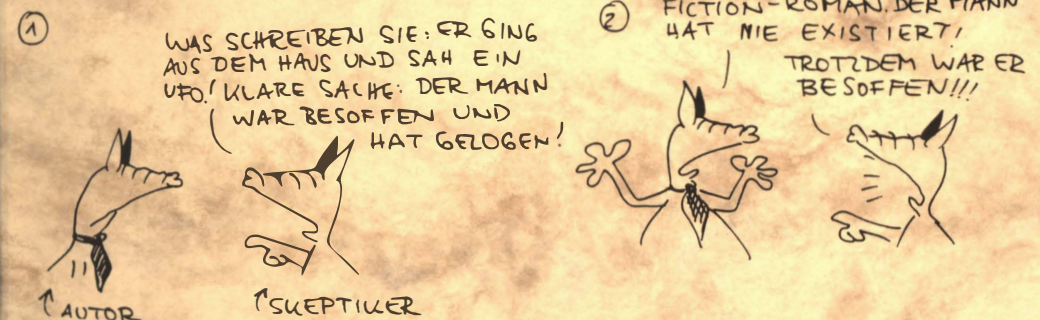 1
WAS SCHREIBEN SIE: ER GING
AUS DEM HAUS UND SAH EIN
UFO! KLARE SACHE: DER MANN
WAR BESOFFEN UND
HAT GELOGEN!
↑ AUTOR
↑ SKEPTIKER
2
FICTION-ROMAN. DER MANN
HAT NIE EXISTIERT!
TROTZDEM WAR ER
BESOFFEN!!!